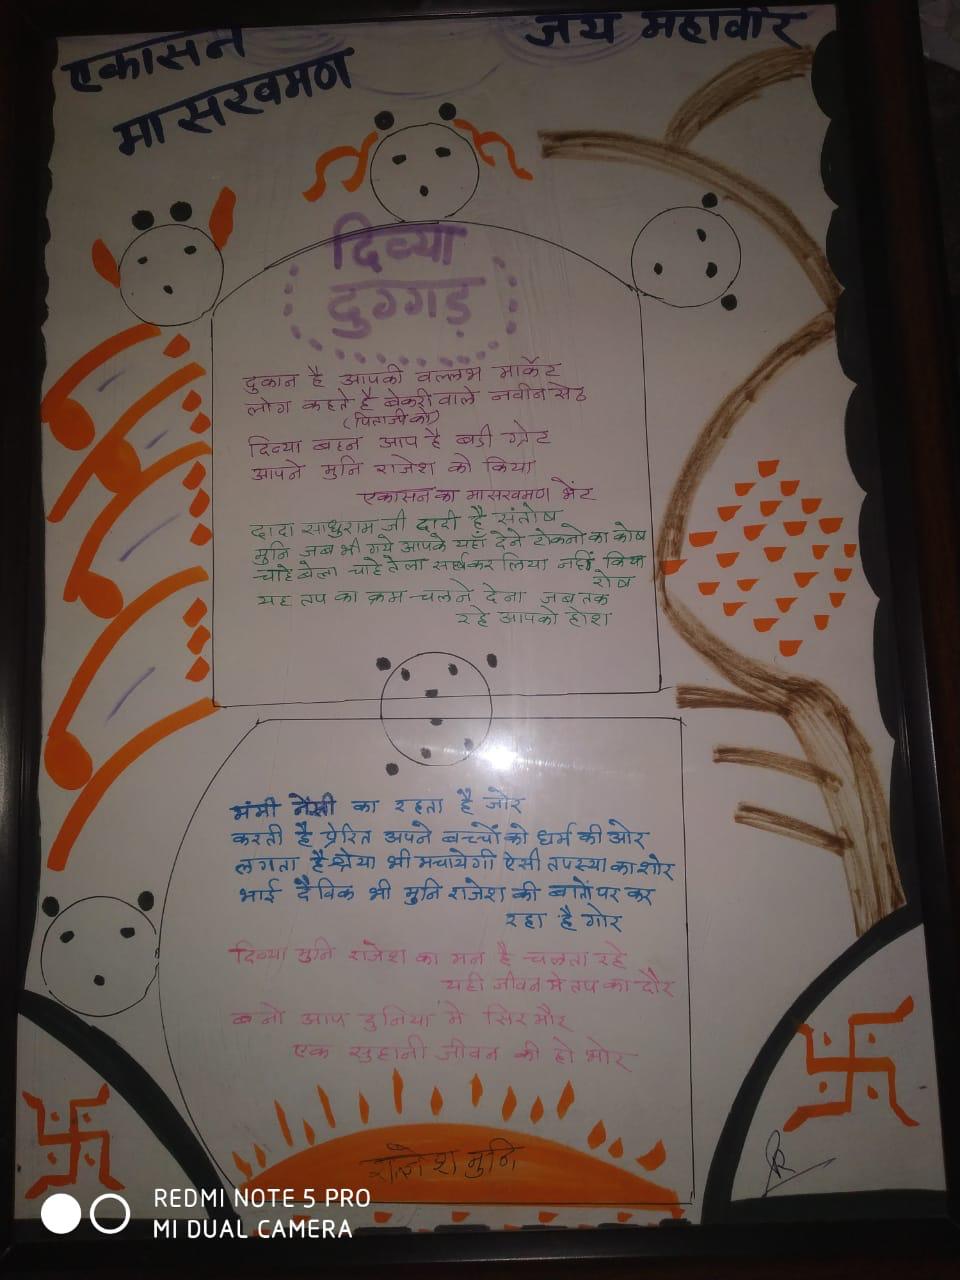 एकासन
मासखमण
जय महावीर
दिव्या
दुग्गड़
दुकान है आपकी वल्लभ मार्केट
लोग कहते है बेकरी वाले नवीन सेठ
(पिताजी को)
दिव्या बहन आप है बडी ग्रेट
आपने मुनि राजेश को किया
एकासन का मासखमण भेंट
दादा साधुराम जी दादी है संतोष
मुनि जब भी गये आपके यहाँ देने टोकनो का कोष
चाहे बेला चाहे तेला सहर्ष कर लिया नहीं किया
रोष
यह तप का क्रम चलने देना जब तक
रहे आपको होश
मंमी नैंसी का रहता है जोर
करती है प्रेरित अपने बच्चों को धर्म की ओर
लगता है श्रेया भी मचायेगी ऐसी तपस्या का शोर
भाई दैविक भी मुनि राजेश की बातो पर कर
रहा है गोर
दिव्या मुनि राजेश का मन है चलता रहे
यही जीवन मे तप का दौर
बनो आप दुनिया मे सिरमौर
एक सुहानी जीवन की हो भोर
राजेश मुनि
REDMI NOTE 5 PRO
MI DUAL CAMERA